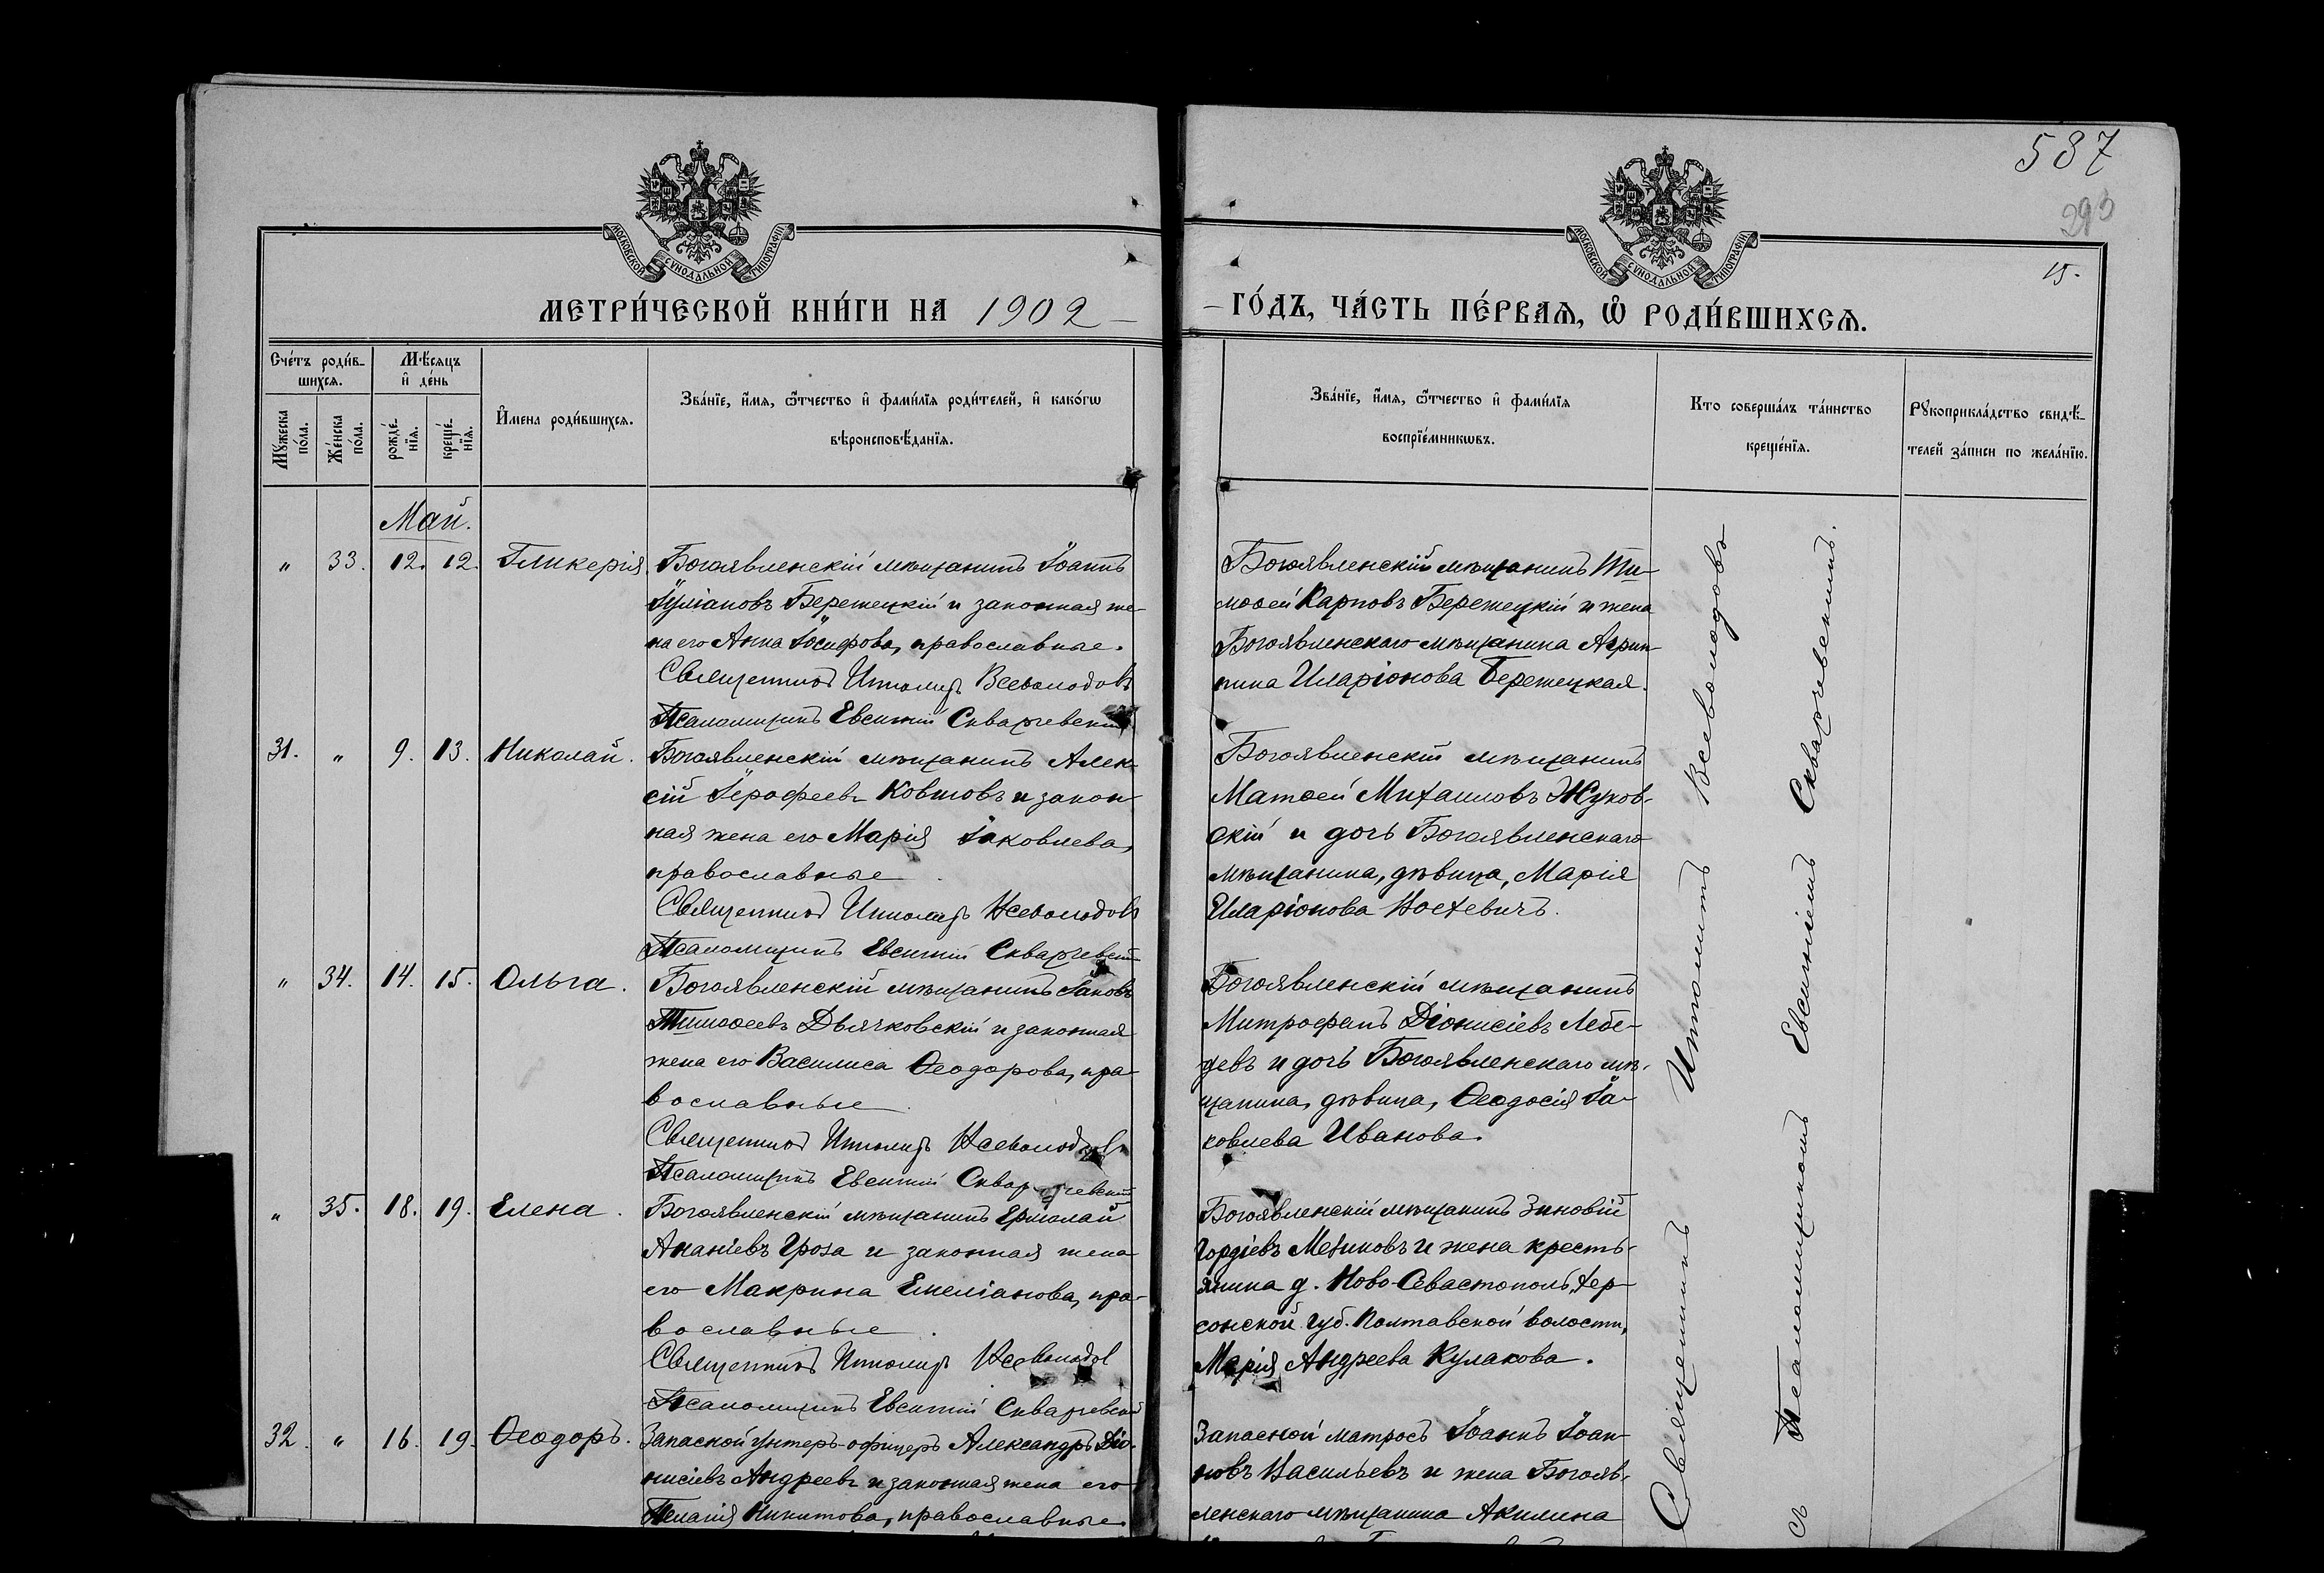 537
293
15.
МОСКОВСКОЙ СѴНОДАЛЬНОЙ ТИПОГРАФІИ
МОСКОВСКОЙ СѴНОДАЛЬНОЙ ТИПОГРАФІИ
МЕТРИ́ЧЕСКОЙ КНИ́ГИ НА 1902
ГО́ДЪ, ЧА́СТЬ ПЕ́РВАѦ, Ѽ РОДИ́ВШИХСѦ.
Сче́тъ роди́в-
шихсѧ.
Мѣ́сѧцъ
и҆ де́нь
Мꙋжеска по́ла.
Же́нска по́ла.
рожде́-
нїѧ.
креще́-
нїѧ.
И҆мена роди́вшихсѧ.
Зва́нїе, и҆́мѧ, ѻ҆́тчество и҆ фами́лїѧ роди́телей, и҆ како́гѡ
вѣроисповѣ́данїѧ.
Зва́нїе, и҆́мѧ, ѻ҆́тчество и҆ фами́лїѧ
воспрїе́мникѡвъ.
Кто соверша́лъ та́инство
креще́нїѧ.
Рꙋкоприкла́дство свидѣ́-
телей за́писи по жела́нїю.
Май.
" 33. 12. 12. Гликерія.
Богоявленскій мѣщанинъ Іоаннъ
Іуліановъ Бережецкій и законная же-
на его Анна Іосифова, православные.
Священникъ Ипполитъ Всеволодовъ
Псаломщикъ Евсигній Скваржевскій
Богоявленскій мѣщанинъ Ти-
моѳей Карповъ Бережецкій и жена
Богоявленскаго мѣщанина Агрип-
пина Иларіонова Бережецкая.
31. " 9. 13. Николай.
Богоявленскій мѣщанинъ Алек-
сій Іерофеевъ Ковтовъ и закон-
ная жена его Марія Іаковлева,
православные
Священникъ Ипполитъ Всеволодовъ
Псаломщикъ Евсигній Скваржевскій
Богоявленскій мѣщанинъ
Матѳей Михаиловъ Жуков-
скій и дочь Богоявленскаго
мѣщанина, дѣвица, Марія
Иларіонова
" 34. 14. 15. Ольга.
Богоявленскій мѣщанинъ Іаковъ
Тимоѳеевъ Дьячковскій и законная
жена его Василиса Ѳеодорова, пра-
вославные
Священникъ Ипполитъ Всеволодовъ
Псаломщикъ Евсигній Скваржевскій
Богоявленскій мѣщанинъ
Митрофанъ Діонисіевъ Лебе-
девъ и дочь Богоявленскаго мѣ-
щанина, дѣвица, Ѳеодосія Іа-
ковлева Иванова.
" 35. 18. 19. Елена.
Богоявленскій мѣщанинъ Ермолай
Ананіевъ Гроза и законная жена
его Макрина Емеліанова, пра-
вославные.
Священникъ Ипполитъ Всеволодов
Псаломщикъ Евсигній Скваржевскій
Богоявленскій мѣщанинъ Зиновій
Гордіевъ и жена кресть-
янина д. Ново-Севастополь, Хер-
сонской губ. Полтавской волости,
Марія Андреева Кулакова.
32. " 16. 19. Ѳеодоръ.
Запасной унтеръ-офицеръ Александръ Діо-
нисіевъ Андреевъ и законная жена его
Пелагія Никитова, православные.
Запасной матросъ Іоаннъ Іоан-
новъ Васильевъ и жена Богояв-
ленскаго мѣщанина Акилина
Священникъ Ипполитъ Всеволодовъ
съ Псаломщикомъ Евсигніемъ Скваржевскимъ.